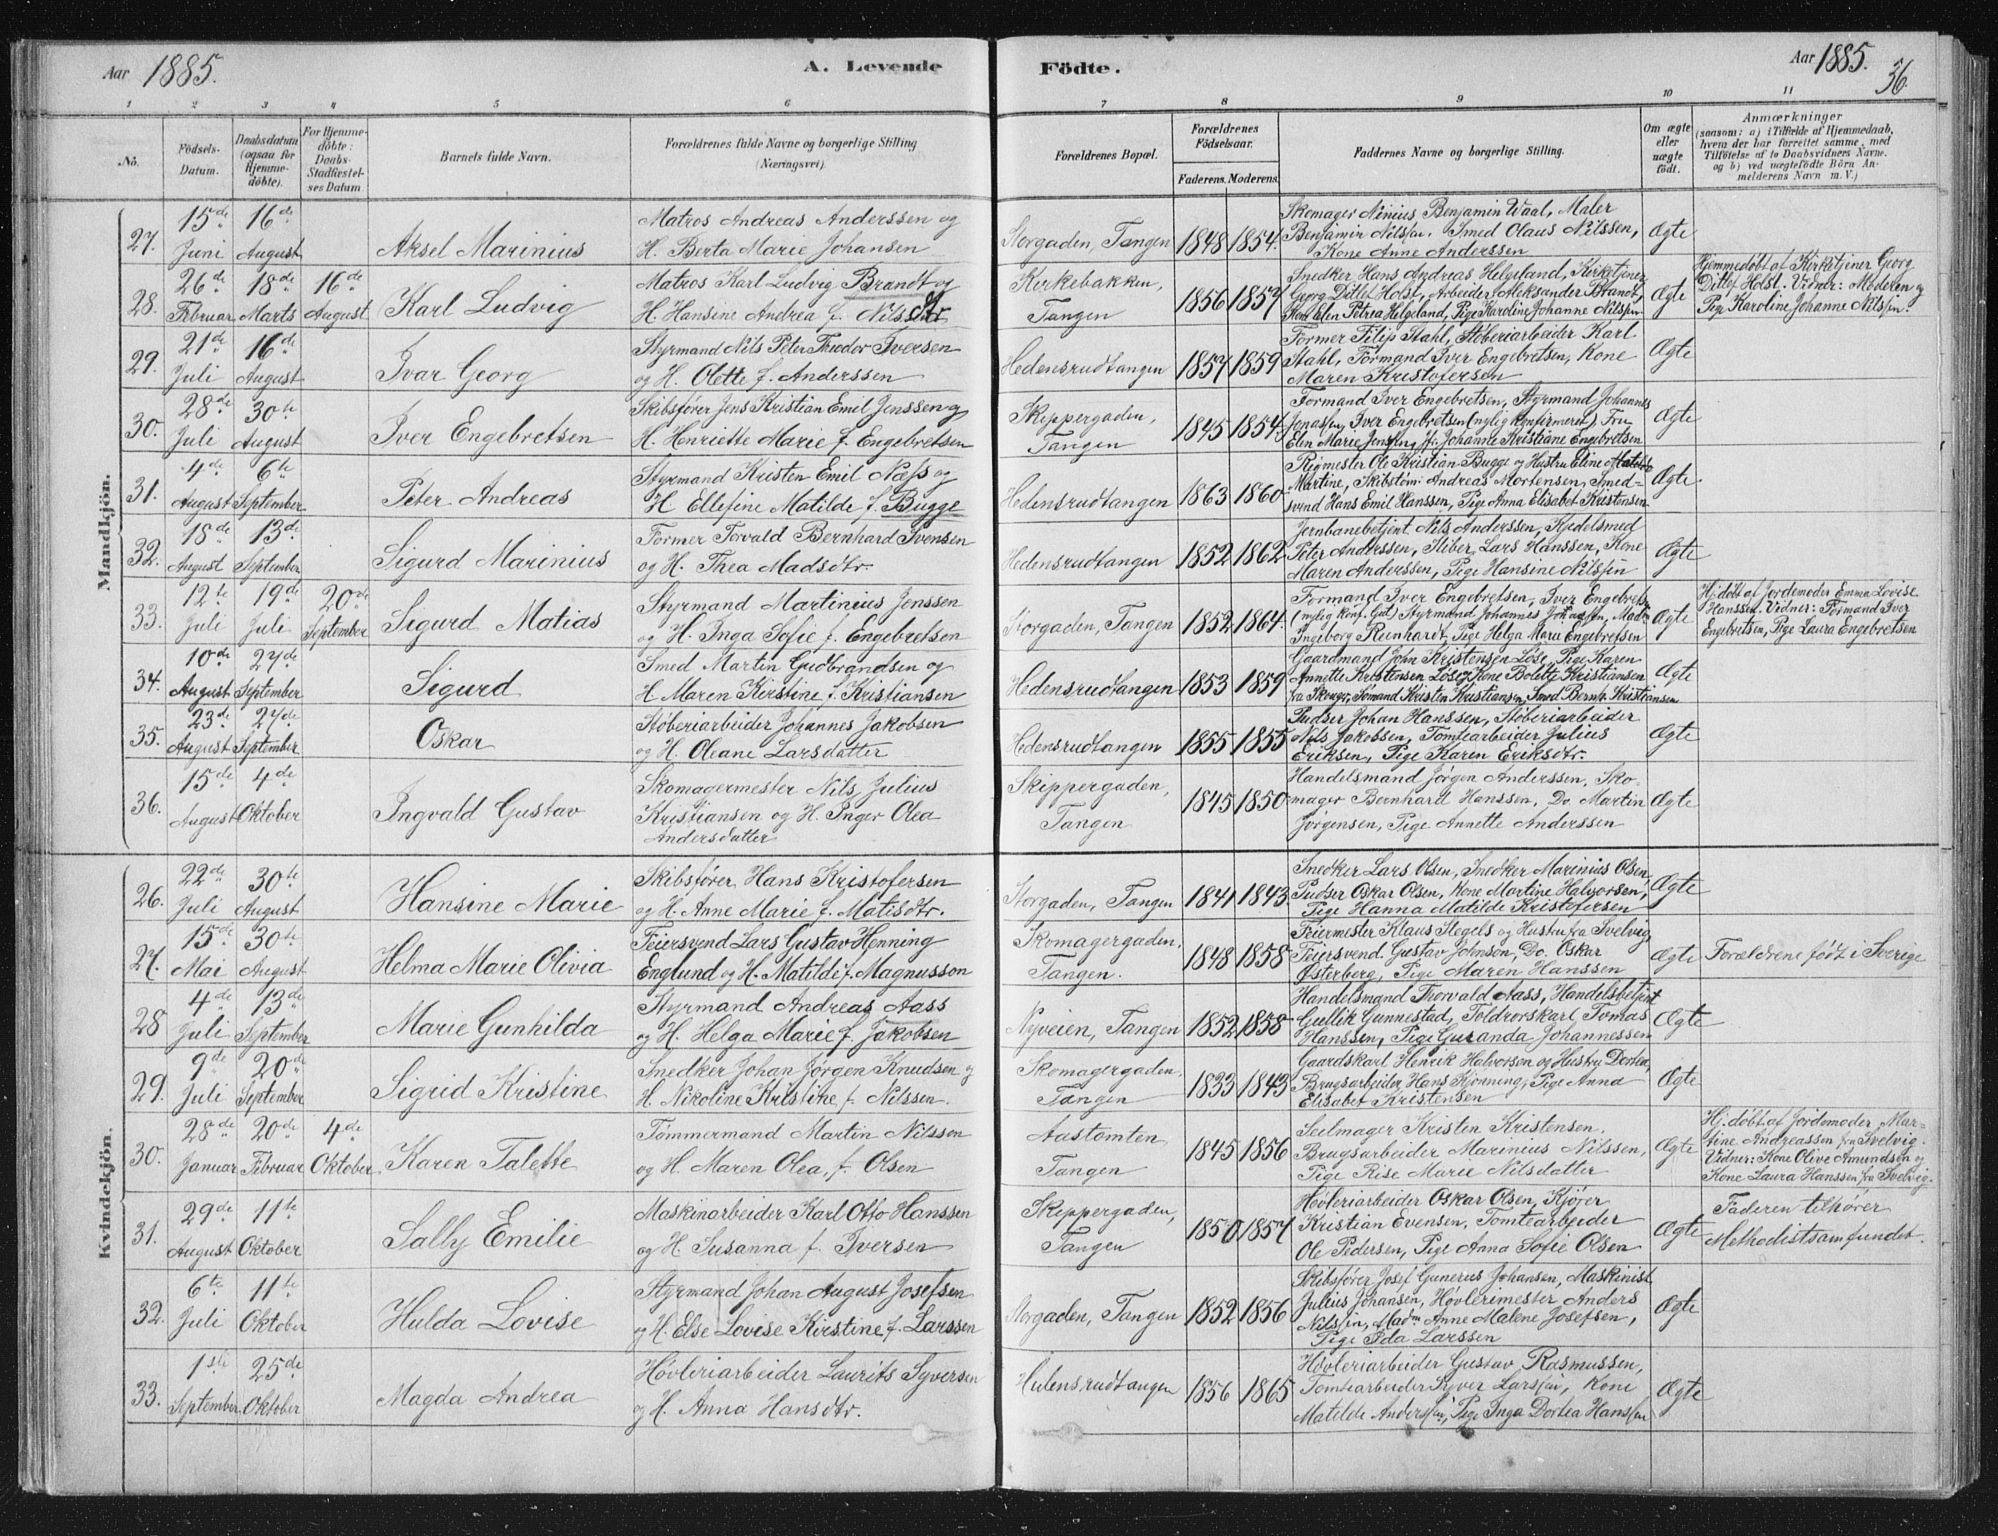 Aar 1885.
A. Levende
Födte.
Aar 1885.
36.
1 2 3 4 5 6 7 8 9 10 11
No.
Födsels-
Datum.
Daabsdatum
(ogsaa for
Hjemme-
döbte).
For Hjemme-
döbte:
Daabs-
Stadfæstel-
ses Datum
Barnets fulde Navn.
Forældrenes fulde Navne og borgerlige Stilling
(Næringsvei)
Forældrenes Bopæl.
Forældrenes
Födselsaar.
Faderens. Moderens.
Faddernes Navne og borgerlige Stilling.
Om ægte
eller
uægte
födt.
Anmærkninger
(saasom: a) i Tilfælde af Hjemmedaab,
hvem der har forrettet samme, med
Tilföielse af to Daabsvidners Navne.
og b) ved uægtefödte Börn An-
melderens Navn m. V.)
Mandkjön.
27. 15de Juni 16de August
Aksel Marinius
Matros Andreas Anderssen og
H. Berta Marie Johansen
Storgaden, Tangen 1848 1854.
Skomager Ninius Benjamin Waal, Maler
Benjamin Nilssen. Smed Olaus Nilssen,
Kone Anne Anderssen
Ægte
28. 26de Februar 18de Marts 16de August
Karl Ludvig
Matros Karl Ludvig Brandt og
H. Hansine Andrea f. Nilsdtr
Kirkebakken,
Tangen
1856 1857
Snedker Hans Andreas Helgeland, Kirketjener
Georg Ditlef Holst, Arbeider Aleksander Brandt,
Kone Elen Petrea Helgeland, Pige Karoline Johanne Nilssen
Ægte
Hjemmedøbt af Kirketjener Georg
Ditlef Holst. Vidner: Moderen og
Pige Karoline Johanne Nilssen.
29. 21de Juli 16de August
Ivar Georg
Styrmand Nils Peter Theodor Iversen
og H. Olette f. Anderssen
Hedensrudtangen 1857 1859
Former Filip Stahl, Støberiarbeider Karl
Stahl, Formand Iver Engebretsen, Kone
Maren Kristofersen
Ægte
30. 28de Juli 30te August
Iver Engebretsen
Skibsfører Jens Kristian Emil Jenssen og
H. Henriette Marie f. Engebretsen
Skippergaden,
Tangen
1845 1854.
Formand Iver Engebretsen, Styrmand Johannes
Jonassen, Iver Engebretsen (nylig konfirmeret), Fru
Elen Marie Jenssen, Johanne Kristiane Engebretsen
Ægte
31. 4de August 6te September
Peter Andreas
Styrmand Kristen Emil Næss og
H Ellefine Matilde f. Bugge
Hedensrudtangen 1863 1860
Rigmester Ole Kristian Bugge og Hustru Eline
Martine, Skibstøm: Andreas Mortensen, Smed-
svend Hans Emil Hanssen, Pige Anna Elisabet Kristensen
Ægte
32. 18de August 13de September
Sigurd Marinius
Former Torvald Bernhard Svensen
og H. Thea Madsdtr.
Hedensrudtangen 1852 1862
Jernbanebetjent Nils Anderssen, Kjedelsmed
Peter Anderssen, Sliber Lars Hanssen, Kone
Maren Anderssen, Pige Hansine Nilssen
Ægte
33. 12te Juli 19de Juli 20de September
Sigurd Matias
Styrmand Martinius Jenssen
og H. Inga Sofie f. Engebretsen
Storgaden, Tangen 1852 1864.
Formand Iver Engebretsen, Iver Engebrets.
(nylig konf. Gut) Styrmand Johannes Jonassen, Madm
Ingeborg Reinhardt, Pige Helga Marie Engebretsen
Ægte
Hj.døbt af Jordemoder Emma Lovise
Hanssen. Vidner: Formand Iver
Engebretsen, Pige Laura Engebretsen
34. 10de August 27de September
Sigurd
Smed Martin Gudbrandsen og
H. Maren Kirstine f. Kristiansen
Hedensrudtangen 1853 1859
Gaardmand John Kristensen Løse, Pige Karen
Annette Kristensen Løse, Kone Bolette Kristiansen
fra Skouger, Sømand Kristen Kristiansen, Smed Bernh. Kristiansen
Ægte
35. 23de August 27de September
Oskar
Støberiarbeider Johannes Jakobsen
og H. Oleane Larsdatter
Hedensrudtangen 1855 1855
Pudser Johan Hanssen, Støberiarbeider
Nils Jakobsen, Tomtearbeider Julius
Eriksen, Pige Karen Eriksdtr.
Ægte
36. 15de August 4de Oktober
Ingvald Gustav
Skomagermester Nils Julius
Kristiansen og H. Inger Olea
Andersdatter
Skippergaden,
Tangen
1845 1850
Handelsmand Jørgen Anderssen, Sko-
mager Bernhard Hanssen, Do. Martin
Jørgensen, Pige Annette Anderssen
Ægte
Kvindekjön.
26. 22de Juli 30te August
Hansine Marie
Skibsfører Hans Kristofersen
og H. Anne Marie f. Matisdtr.
Storgaden, Tangen 1841 1843.
Snedker Lars Olsen, Snedker Marinius Olsen,
Pudser Oskar Olsen, Kone Martine Halvorsen,
Pige Hanna Matilde Kristofersen
Ægte
27. 15de Mai 30te August
Helma Marie Olivia
Feiersvend Lars Gustav Henning
Englund og H. Matilde f. Magnusson
Skomagergaden,
Tangen.
1848 1858
Feiermester Klaus Stegels og Hustru fra Svelvig,
Feiersvend Gustav Johnson, Do. Oskar
Østerberg, Pige Maren Hanssen
Ægte
Forældrene født i Sverige
28 4de Juli 13de September
Marie Gunhilda
Styrmand Andreas Aass
og H. Helga Marie f. Jakobsen
Nyveien, Tangen 1852 1858
Handelsmand Thorvald Aass, Handelsbetjent
Gullik Gunnestad, Toldrorskarl Tomas
Hanssen, Pige Guranda Johannessen
Ægte
29. 9de Juli 20de September
Sigrid Kristine
Snedker Johan Jørgen Knudsen og
H. Nikoline Kristine f. Nilssen.
Skomagergaden,
Tangen
1833 1843
Gaardskarl Henrik Halvorsen og Hustru Dortea,
Brugsarbeider Hans Kjønning, Pige Anna
Elisabet Kristensen
Ægte
30. 28de Januar 20de Februar 4de Oktober
Karen Talette
Tømmermand Martin Nilsson
og H. Maren Olea, f. Olsen
Aastomten
Tangen
1845 1856
Seilmager Kristen Kristensen,
Brugsarbeider Marinius Nilssen,
Pige Rise Marie Nilsdatter
Ægte
Hj. døbt af Jordemoder Mar-
tine Andreassen fra Svelvig.
Vidner: Kone Olive Amundsen og
Kone Laura Hanssen fra Svelvig.
31. 29de August 11te Oktober
Sally Emilie
Maskinarbeider Karl Otto Hanssen
og H Susanna f. Iversen
Skippergaden,
Tangen
1850 1857
Høvleriarbeider Oskar Olsen, Kjører
Kristian Evensen, Tomtearbeider
Ole Pedersen, Pige Anna Sofie Olsen
Ægte
Faderen tilhører
Methodistsamfundet.
32. 6te Juli 11te Oktober
Hulda Lovise
Styrmand Johan August Josefsen
og H. Else Lovise Kirstine f. Larssen
Storgaden, Tangen 1852 1856
Skibsfører Josef Gunerus Johansen, Maskinist
Julius Johansen, Høvlerimester Anders
Nilssen, Madm Anne Malene Josefsen,
Pige Ida Larssen
Ægte
33. 1ste September 25de Oktober
Magda Andrea
Høvleriarbeider Laurits Syversen
og H. Anna Hansdtr.
Hulensrudtangen 1856 1865
Høvleriarbeider Gustav Rasmussen,
Tomtearbeider Syver Larssen, Kone
Matilde Anderssen, Pige Inga Dortea Hanssen
Ægte